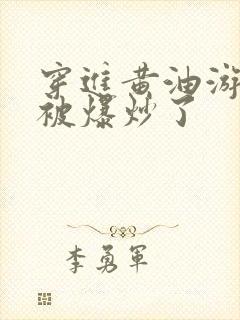 穿進黄油游
被爆炒了
李勇軍